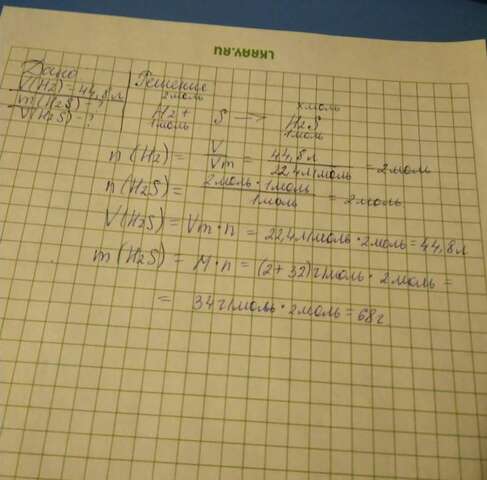 LKRAY.RU
Дано
V(H2) = 44,8 л
m(H2S)
V(H2S) - ?
Решение
2моль хмоль
H2 + S → H2S
1моль 1моль
n(H2) = V/Vm = 44,8л/22,4л/моль = 2моль
n(H2S) = 2моль · 1моль/1моль = 2моль
V(H2S) = Vm · n = 22,4л/моль · 2моль = 44,8л
m(H2S) = M · n = (2+32)г/моль · 2моль =
= 34г/моль · 2моль = 68г